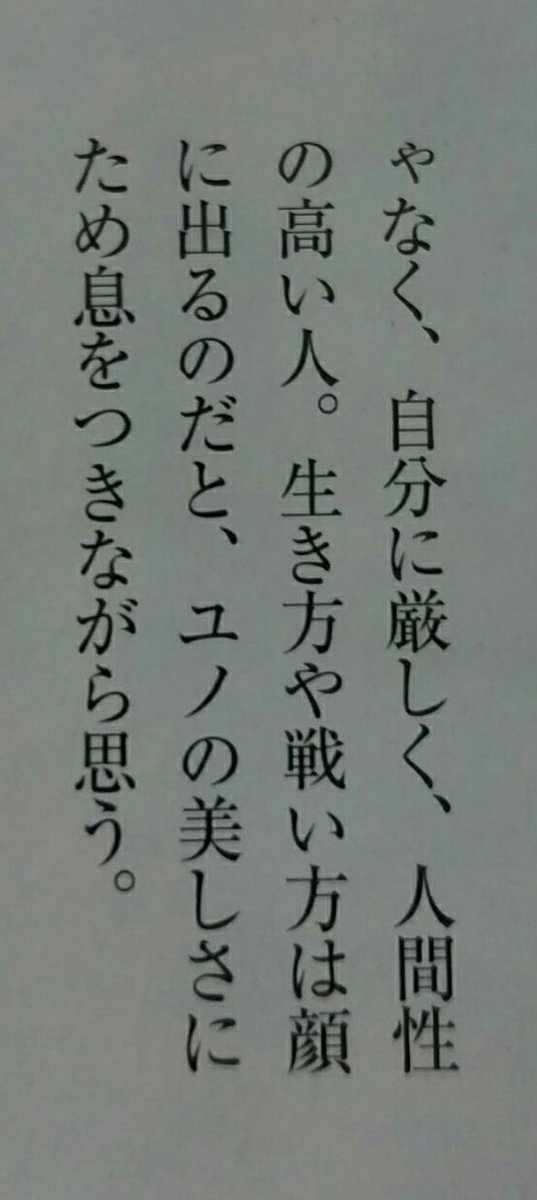 ゃなく、自分に厳しく、人間性
の高い人。生き方や戦い方は顔
に出るのだと、ユノの美しさに
ため息をつきながら思う。